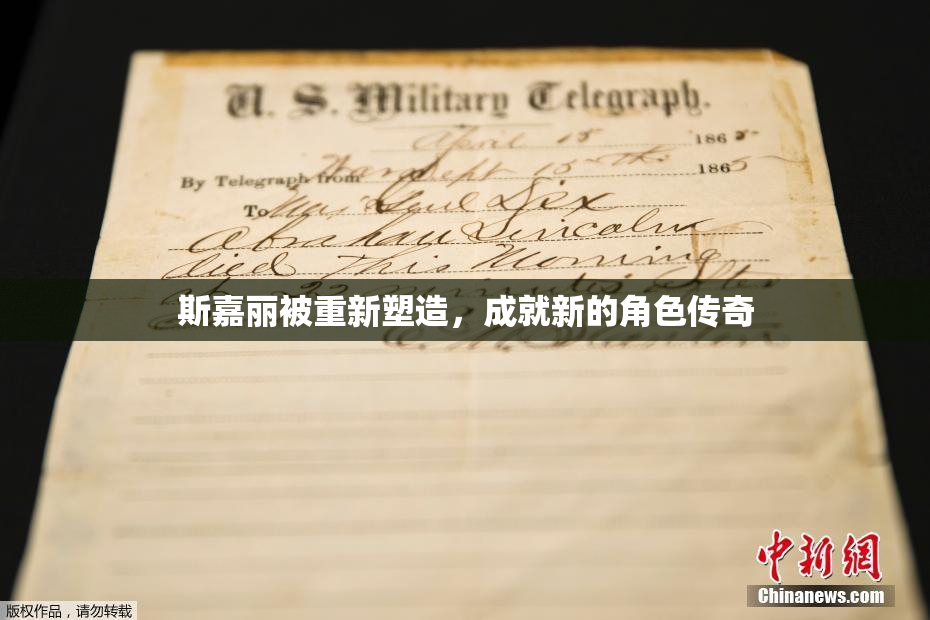 U. S. Military Telegraph.
April 15 1865
By Telegraph from War Dept 15th 1865
To Maj Genl Dix
Abraham Lincoln
died This Morning
at 22 minutes after
斯嘉丽被重新塑造，成就新的角色传奇
E. M. Stanton
中新網
Chinanews.com
版权作品，请勿转载